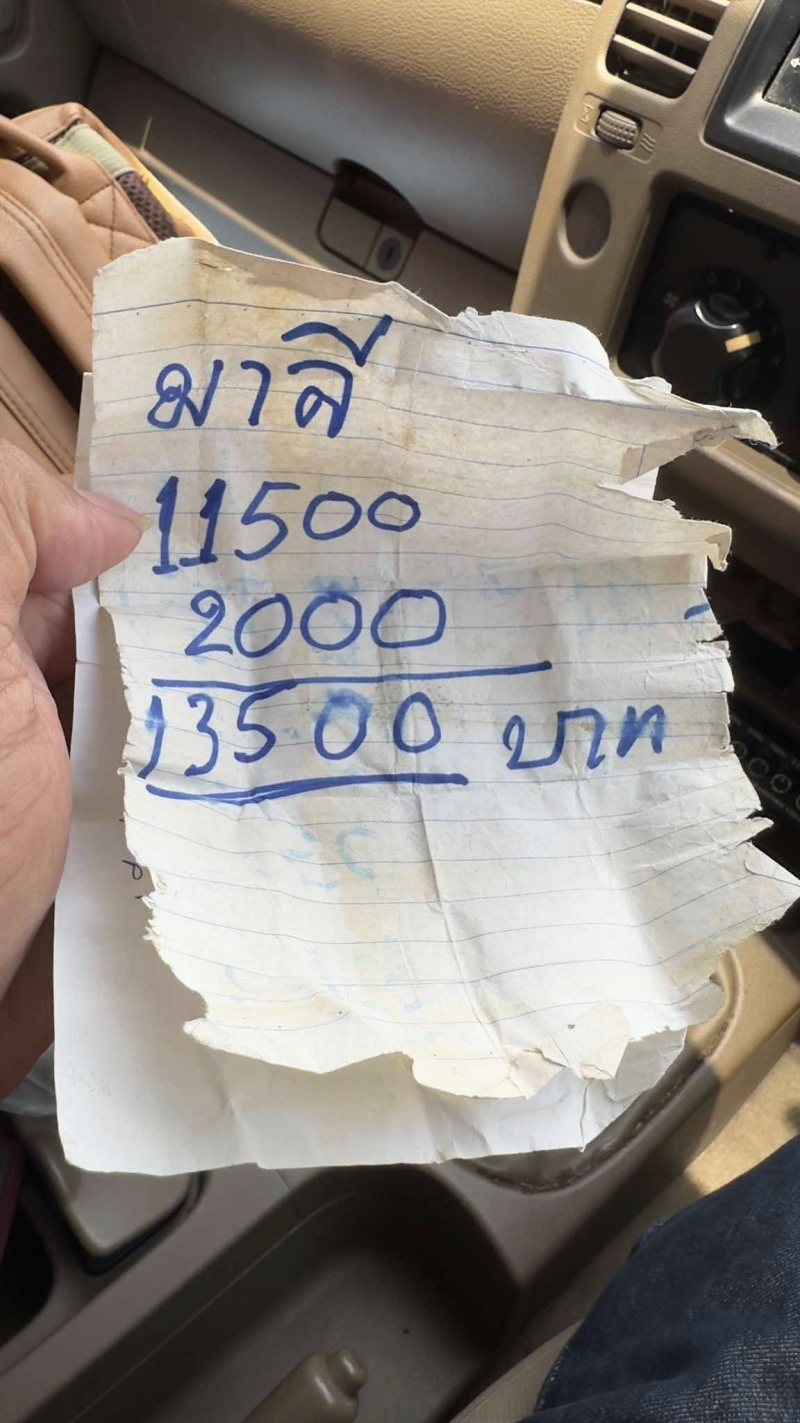 มาลี
11500
2000
13500 บาท